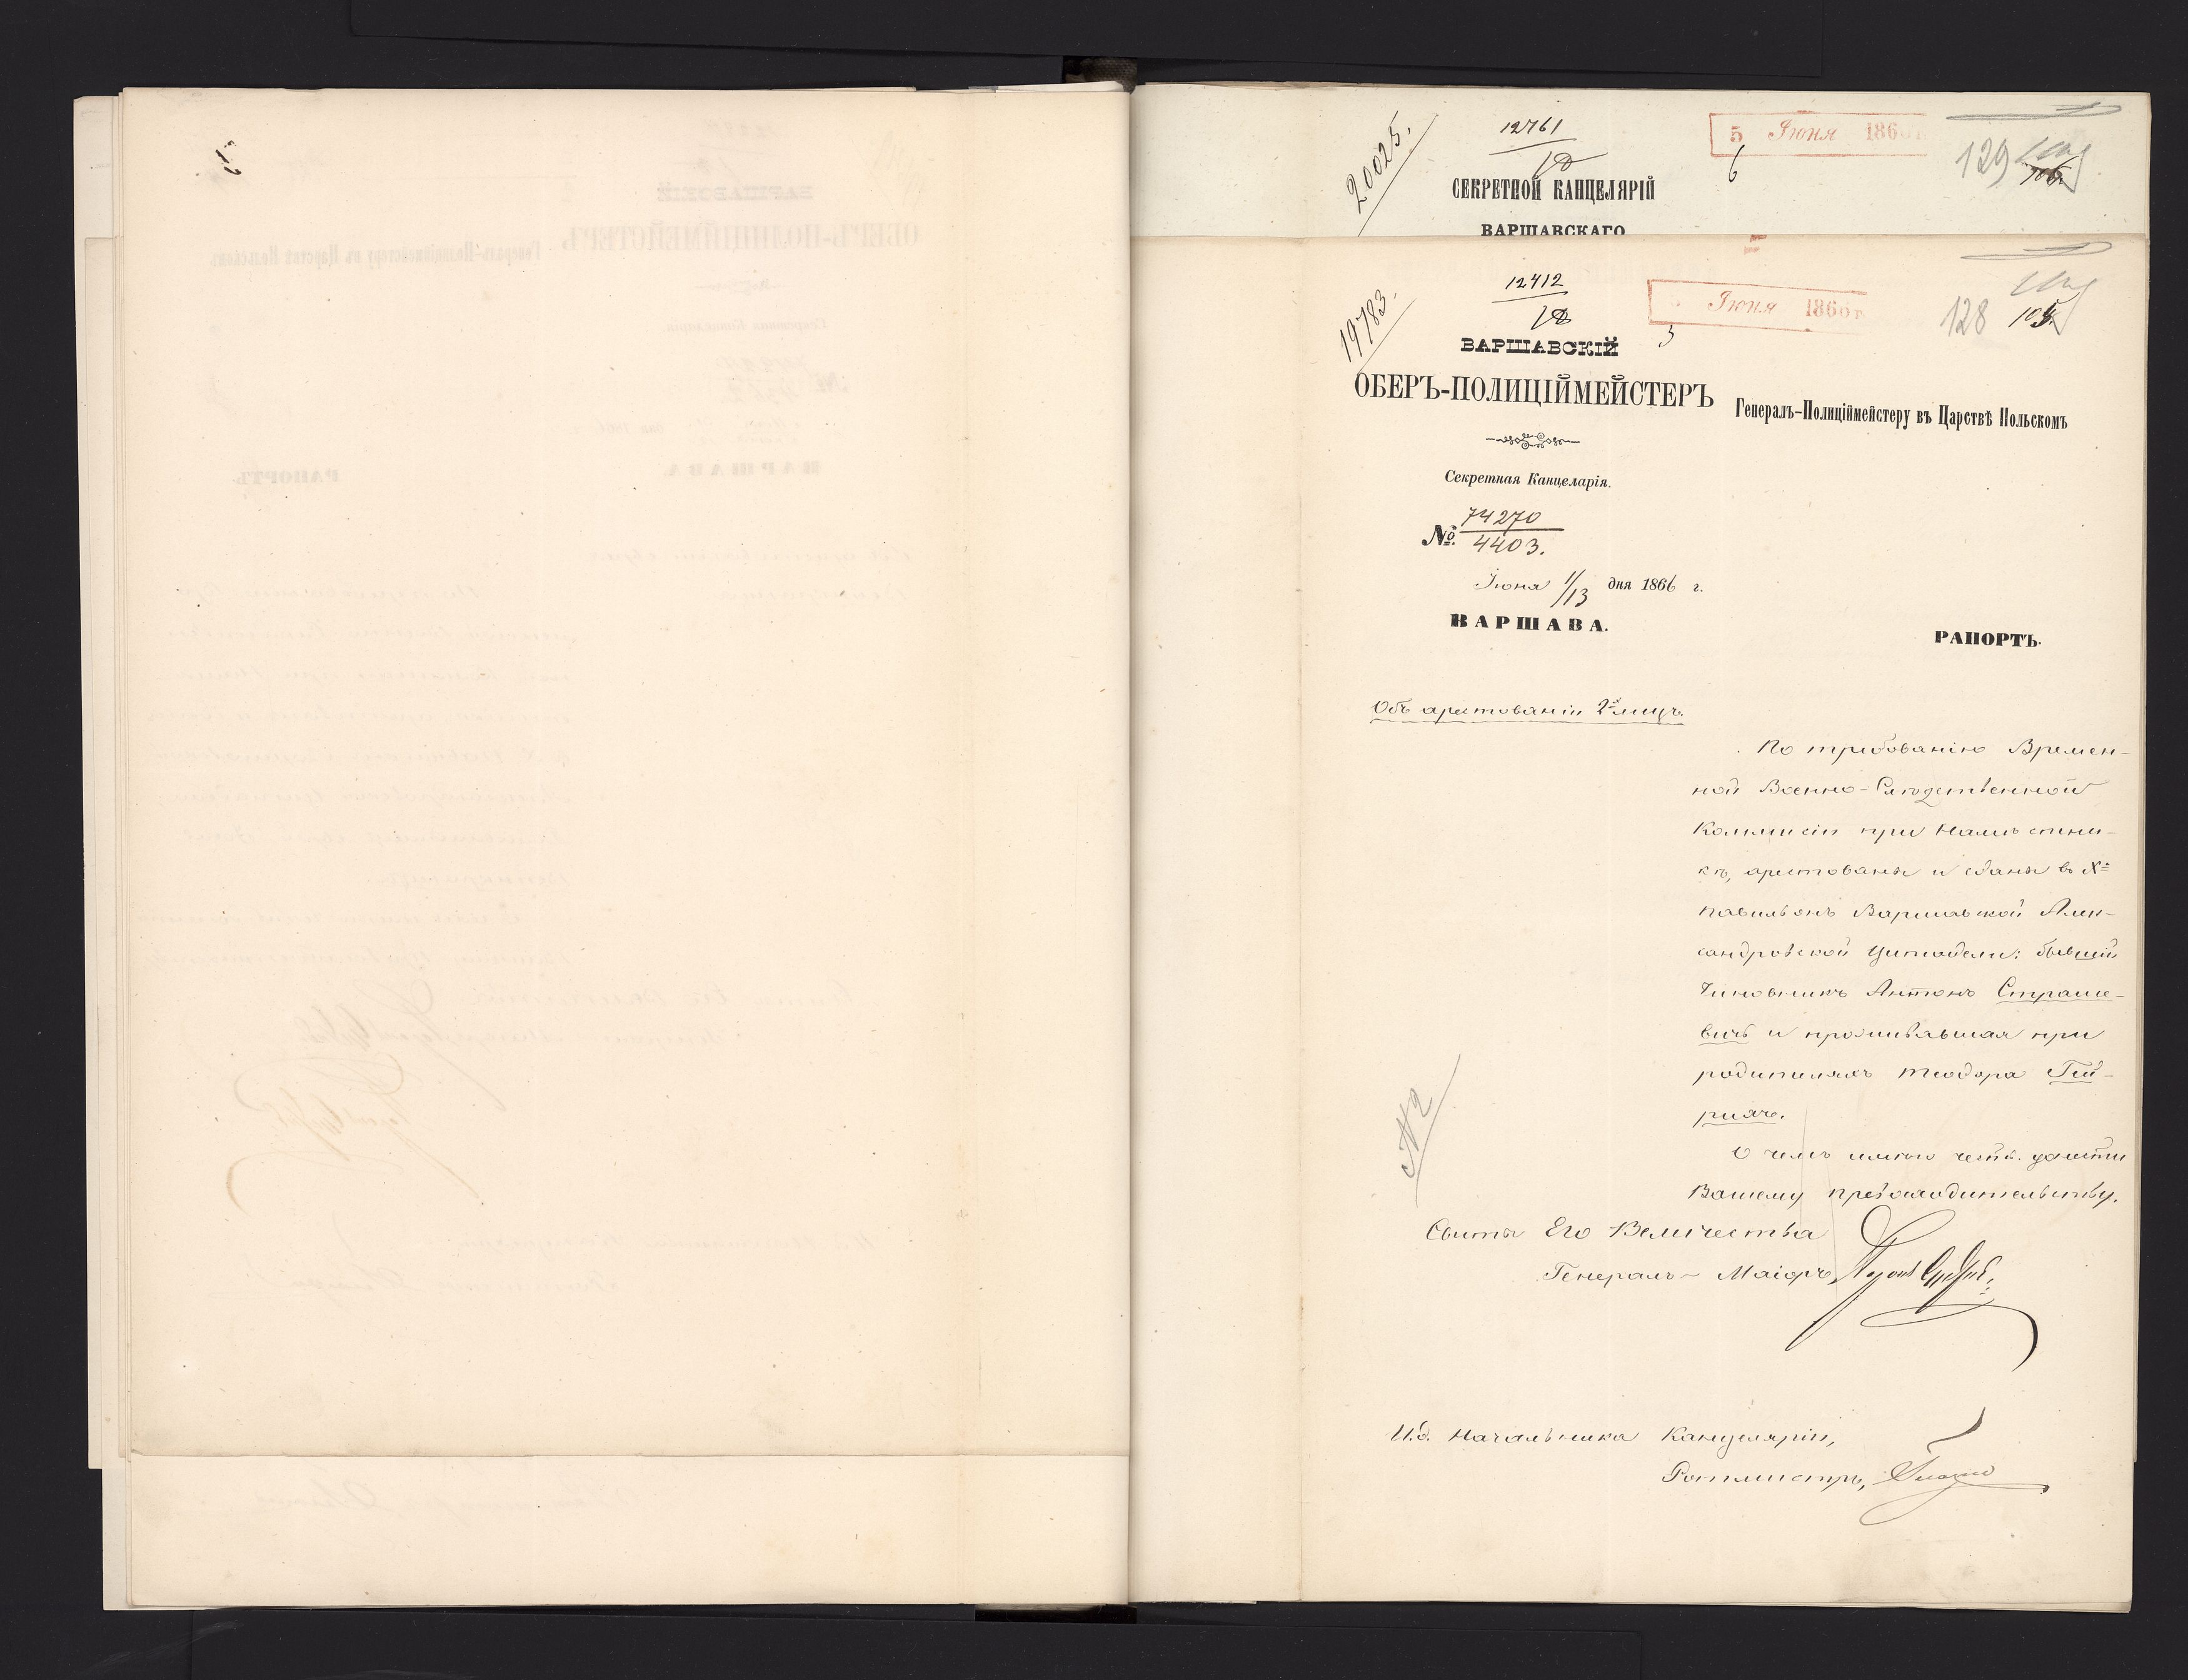 20025.
12761
18
5 Іюня 186
6
129
СЕКРЕТНОЙ КАНЦЕЛЯРІЙ
ВАРШАВСКАГО
19783.
12412
18
Іюня 1866 г
3
128
105.
ВАРШАВСКІЙ
ОБЕРЪ-ПОЛИЦІЙМЕЙСТЕРЪ
Генералъ-Полиціймейстеру въ Царствѣ Польскомъ
Секретная Канцеларія.
№ 74270
4403.
Іюня 1/13 дня 1866 г.
ВАРШАВА.
РАПОРТЪ.
Объ арестованіи 2хъ лицъ.
По требованію Времен-
ной Военно-Слѣдственной
Коммисіи при Намѣстни-
кѣ, арестованы и сданы въ Xй
павильонъ Варшавской Алек-
сандровской Цитадели: бывшій
Чиновникъ Антонъ Страше-
вичъ и проживавшая при
родителяхъ Теодора Гей-
рихъ.
О чемъ имѣю честь донести
Вашему превосходительству.
Свиты Его Величества
Генералъ-Маіоръ,
№2
И.д. Начальника Канцеляріи,
Ротмистръ,